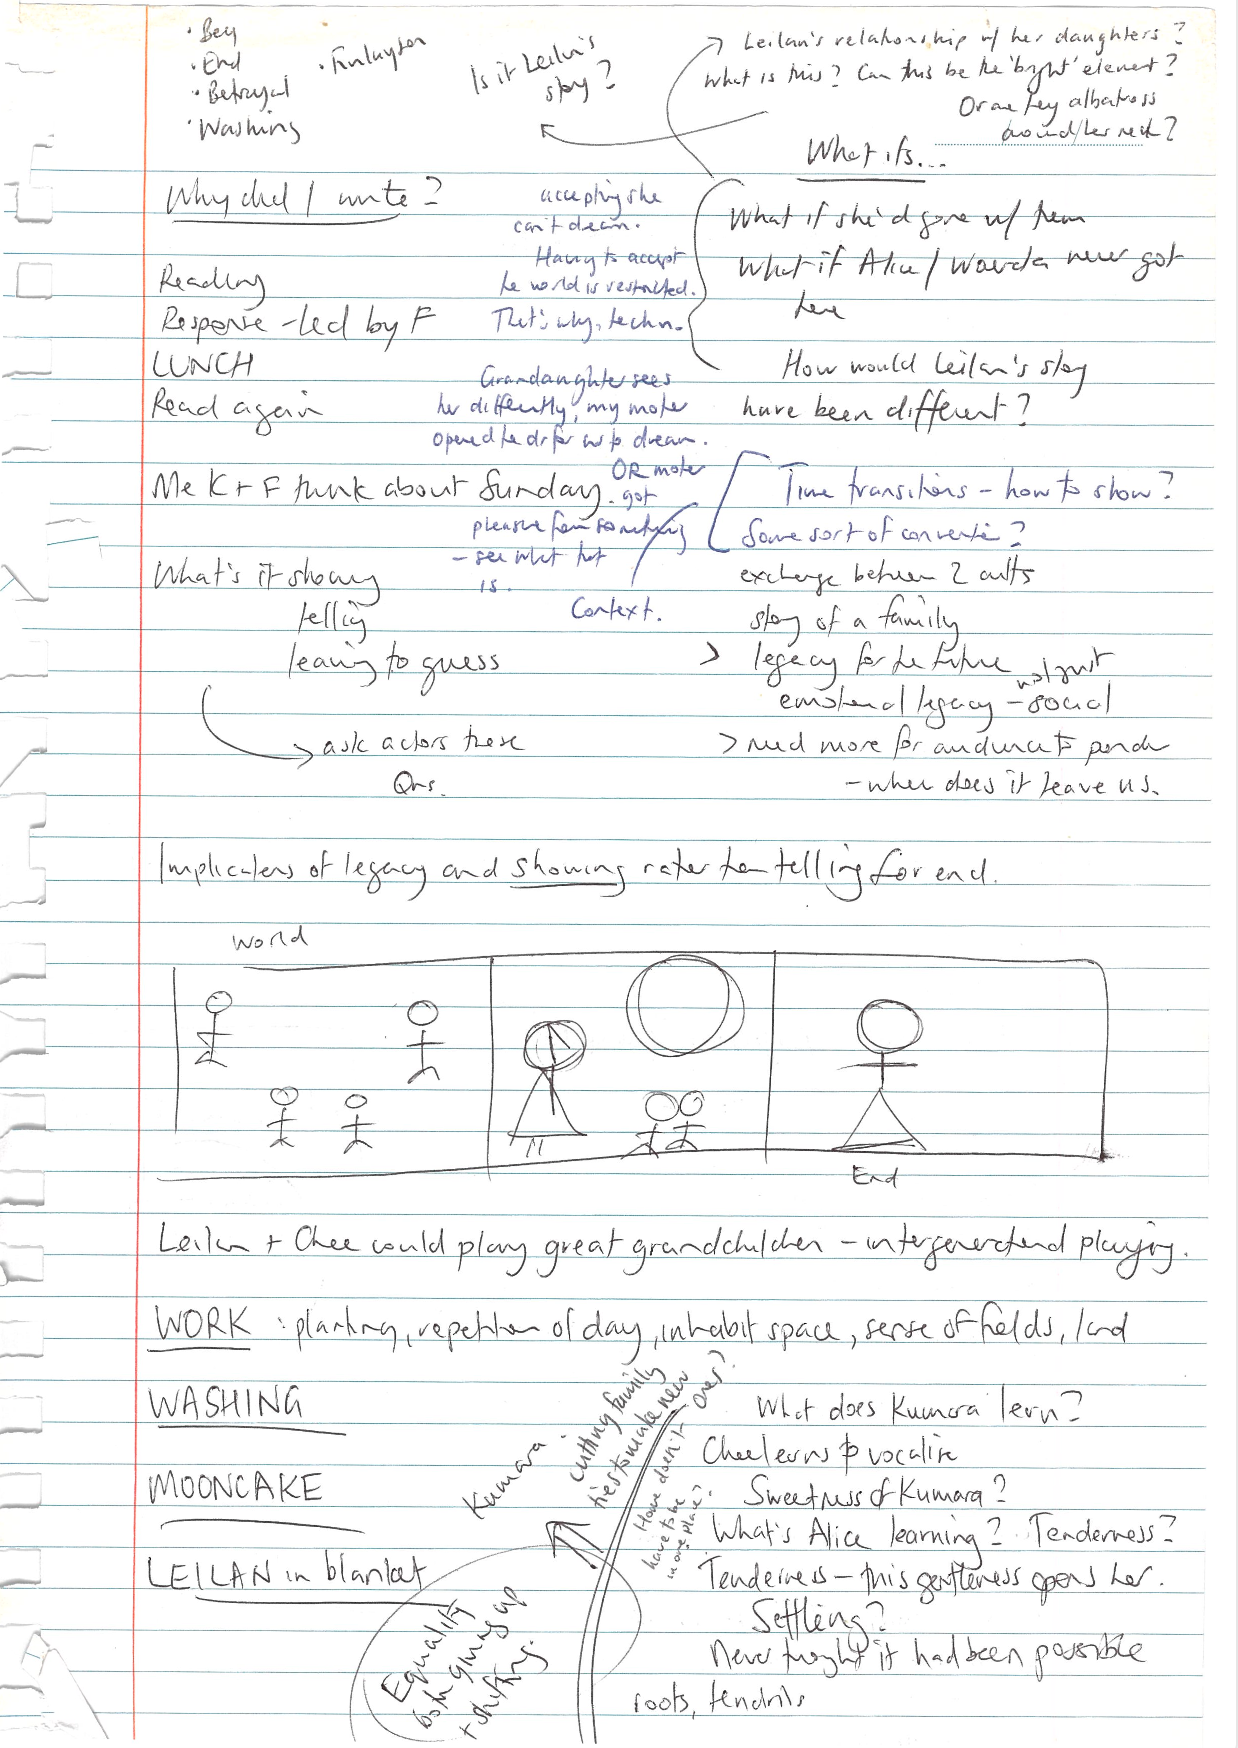 · Beg
· End
· Betrayal
· Washing
· Finlayson
Is it Leilan's
story?
Leilan's relationship w/ her daughters?
What is this? Can this be the 'bright' element?
Or are they albatross
around her neck?
What ifs...
Why did I write?
accepting she
can't dream.
Having to accept
the world is restricted.
That's why, techn.
What if she'd gone w/ them
What if Alice / Wawda never got
here
How would Leilan's story
have been different?
Reading
Response - led by F
LUNCH
Read again
Grandaughter sees
her differently, my mother
opened the dr for us to dream.
OR mother
got
pleasure from something
- see what that
is.
Context.
Me K + F think about Sunday.
Time transitions - how to show?
Some sort of convention?
What's it showing
telling
leaving to guess
ask actors these
Qns.
exchange between 2 cults
story of a family
> legacy for the future
emotional legacy - not just
social
> need more for audience to ponder
- where does it leave us.
Implications of legacy and showing rather than telling for end.
World
End
Leilan + Chee could play great grandchildren - intergenerational playing.
WORK : planting, repetition of day, inhabit space, sense of fields, land
WASHING
MOONCAKE
LEILAN in blanket
Kumara.
cutting family
ties to make new
ones?
Home doesn't
have to be
in one place?
Equality
both giving up
+ shifting.
What does Kumara learn?
Chee learns to vocalise
Sweetness of Kumara?
What's Alice learning? Tenderness?
Tenderness - this gentleness opens her.
Settling?
Never thought it had been possible
roots, tendrils